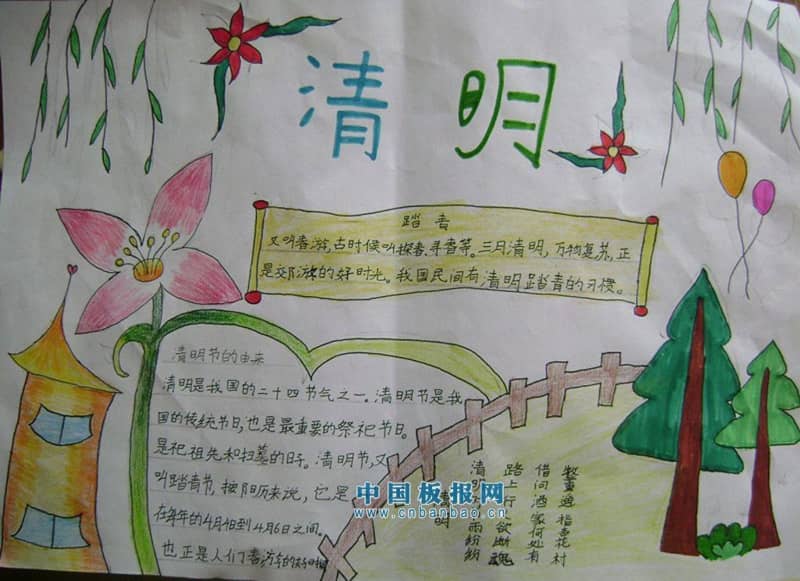 清明
踏青
又叫春游,古时候叫探春、寻春等。三月清明,万物复苏,正
是郊游的好时光。我国民间有清明踏青的习惯。
清明节的由来
清明是我国的二十四节气之一。清明节是我
国的传统节日,也是最重要的祭祀节日。
是祀祖先和扫墓的日子。清明节又
叫踏青节,按阳历来说,它是
在每年的4月4日到4月6日之间。
也正是人们春游的好时
清明
清明 雨纷纷
路上行 欲断魂
借问酒家何处有
牧童遥指杏花村
中国板报网
www.cnbanbao.cn